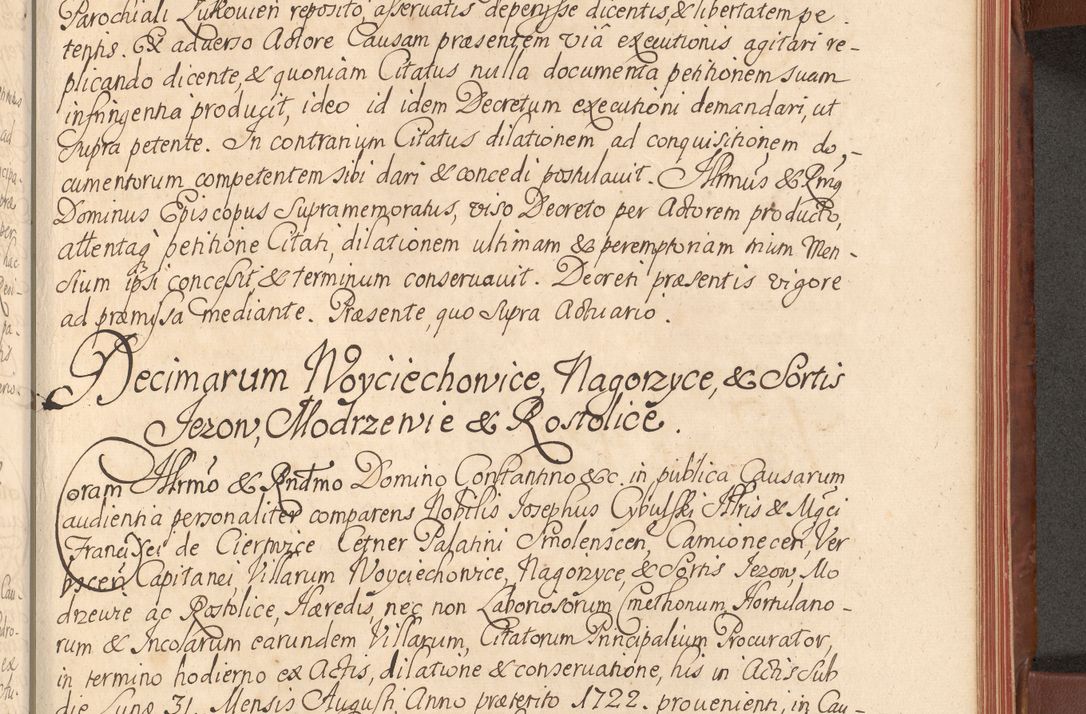 Parochiali Lukovien reposito, asservatis depenysse dicentis, & libertatem pe-
tentis. Ex adverso Actore Causam præsentem viâ executionis agitari re-
plicando dicente, & quoniam Citatus nulla documenta petitionem suam
infringentia producit, ideo id idem Decretum executioni demandari, ut
supra petente. In contrarium Citatus dilationem ad conquisitionem do-
cumentorum competentem sibi dari & concedi postulavit. Illrmus & Rmg
Dominus Episcopus supramemoratus, viso Decreto per Actorem producto,
attenta petitione Citati, dilationem ultimam & peremptoriam trium Men-
sium ipsi concessit, & terminum conservavit. Decreti præsentis vigore
ad præmissa mediante. Præsente, quo supra Actuario.
Decimarum Woyciechowice, Nagorzyce, & Sortis
Jezow, Modrzewie & Rostolice.
Coram Illrmo & Rndmo Domino Constantino &c. in publica Causarum
audientia personaliter comparens Nobilis Josephus Cybulski Illris & Mgci
Francisci de Cetner Palatini Smolenscen, Camionecen, Ver
Capitanei, Villarum Woyciechowice, Nagorzyce, & Sortis Jezow, Mo
drzewie ac Rostolice, Hæredis, nec non Laboriosorum Cmethonum, Hortulano-
rum & Incolarum earundem Villarum, Citatorum Principalium Procurator,
in termino hodierno ex Actis, dilatione & conservatione, his in Actis sub
die Lunæ 31. Mensis Augusti Anno præterito 1722. provenienti, in Cau-